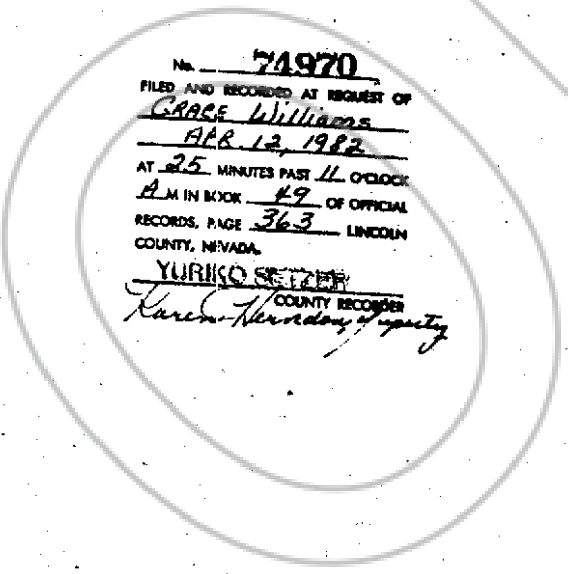 No. 74970
FILED AND RECORDED AT REQUEST OF
GRACE Williams
APR. 12, 1982
AT 25 MINUTES PAST 11 O'CLOCK
A M IN BOOK 49 OF OFFICIAL
RECORDS, PAGE 363 LINCOLN
COUNTY, NEVADA.
YURIKO SETZER
COUNTY RECORDER
Karen Herndon, Deputy